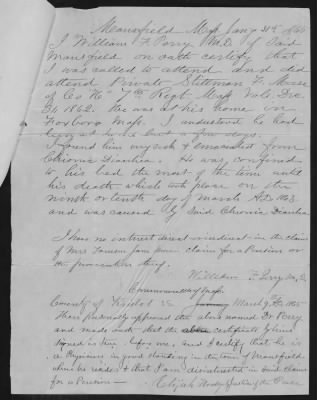 Mansfield Mass Jany 31st 1865
I William F. Perry M.D. of Said
Mansfield on oath certify that
I was called to attend and did
attend Private Stillman F. Morse
of Co "K" 7th Regt Mass Vols. Dec
26 1862. He was at his home in
Foxboro Mass. I understood he had
been at home but a few days.
I found him very sick & emaciated from
Chronic Diarrhea. He was confined
to his bed the most of the time until
his death which took place on the
ninth or tenth day of March A.D. 1863
and was caused by Said Chronic Diarrhea
I have no interest direct or indirect in the claim
of Mrs Jane Morse claim for a Pension or
the prosecution thereof.
William F. Perry M.D.
Commonwealth of Mass.
County of Bristol ss March 9th 1865
Then personally appeared the above named Dr Perry
and made oath that the certificate by him
signed is true, before me, and I certify that he is
a Physician in good standing in the town of Mansfield
and that I am disinterested in Said Claim
for a Pension —
Elijah Justice of the Peace